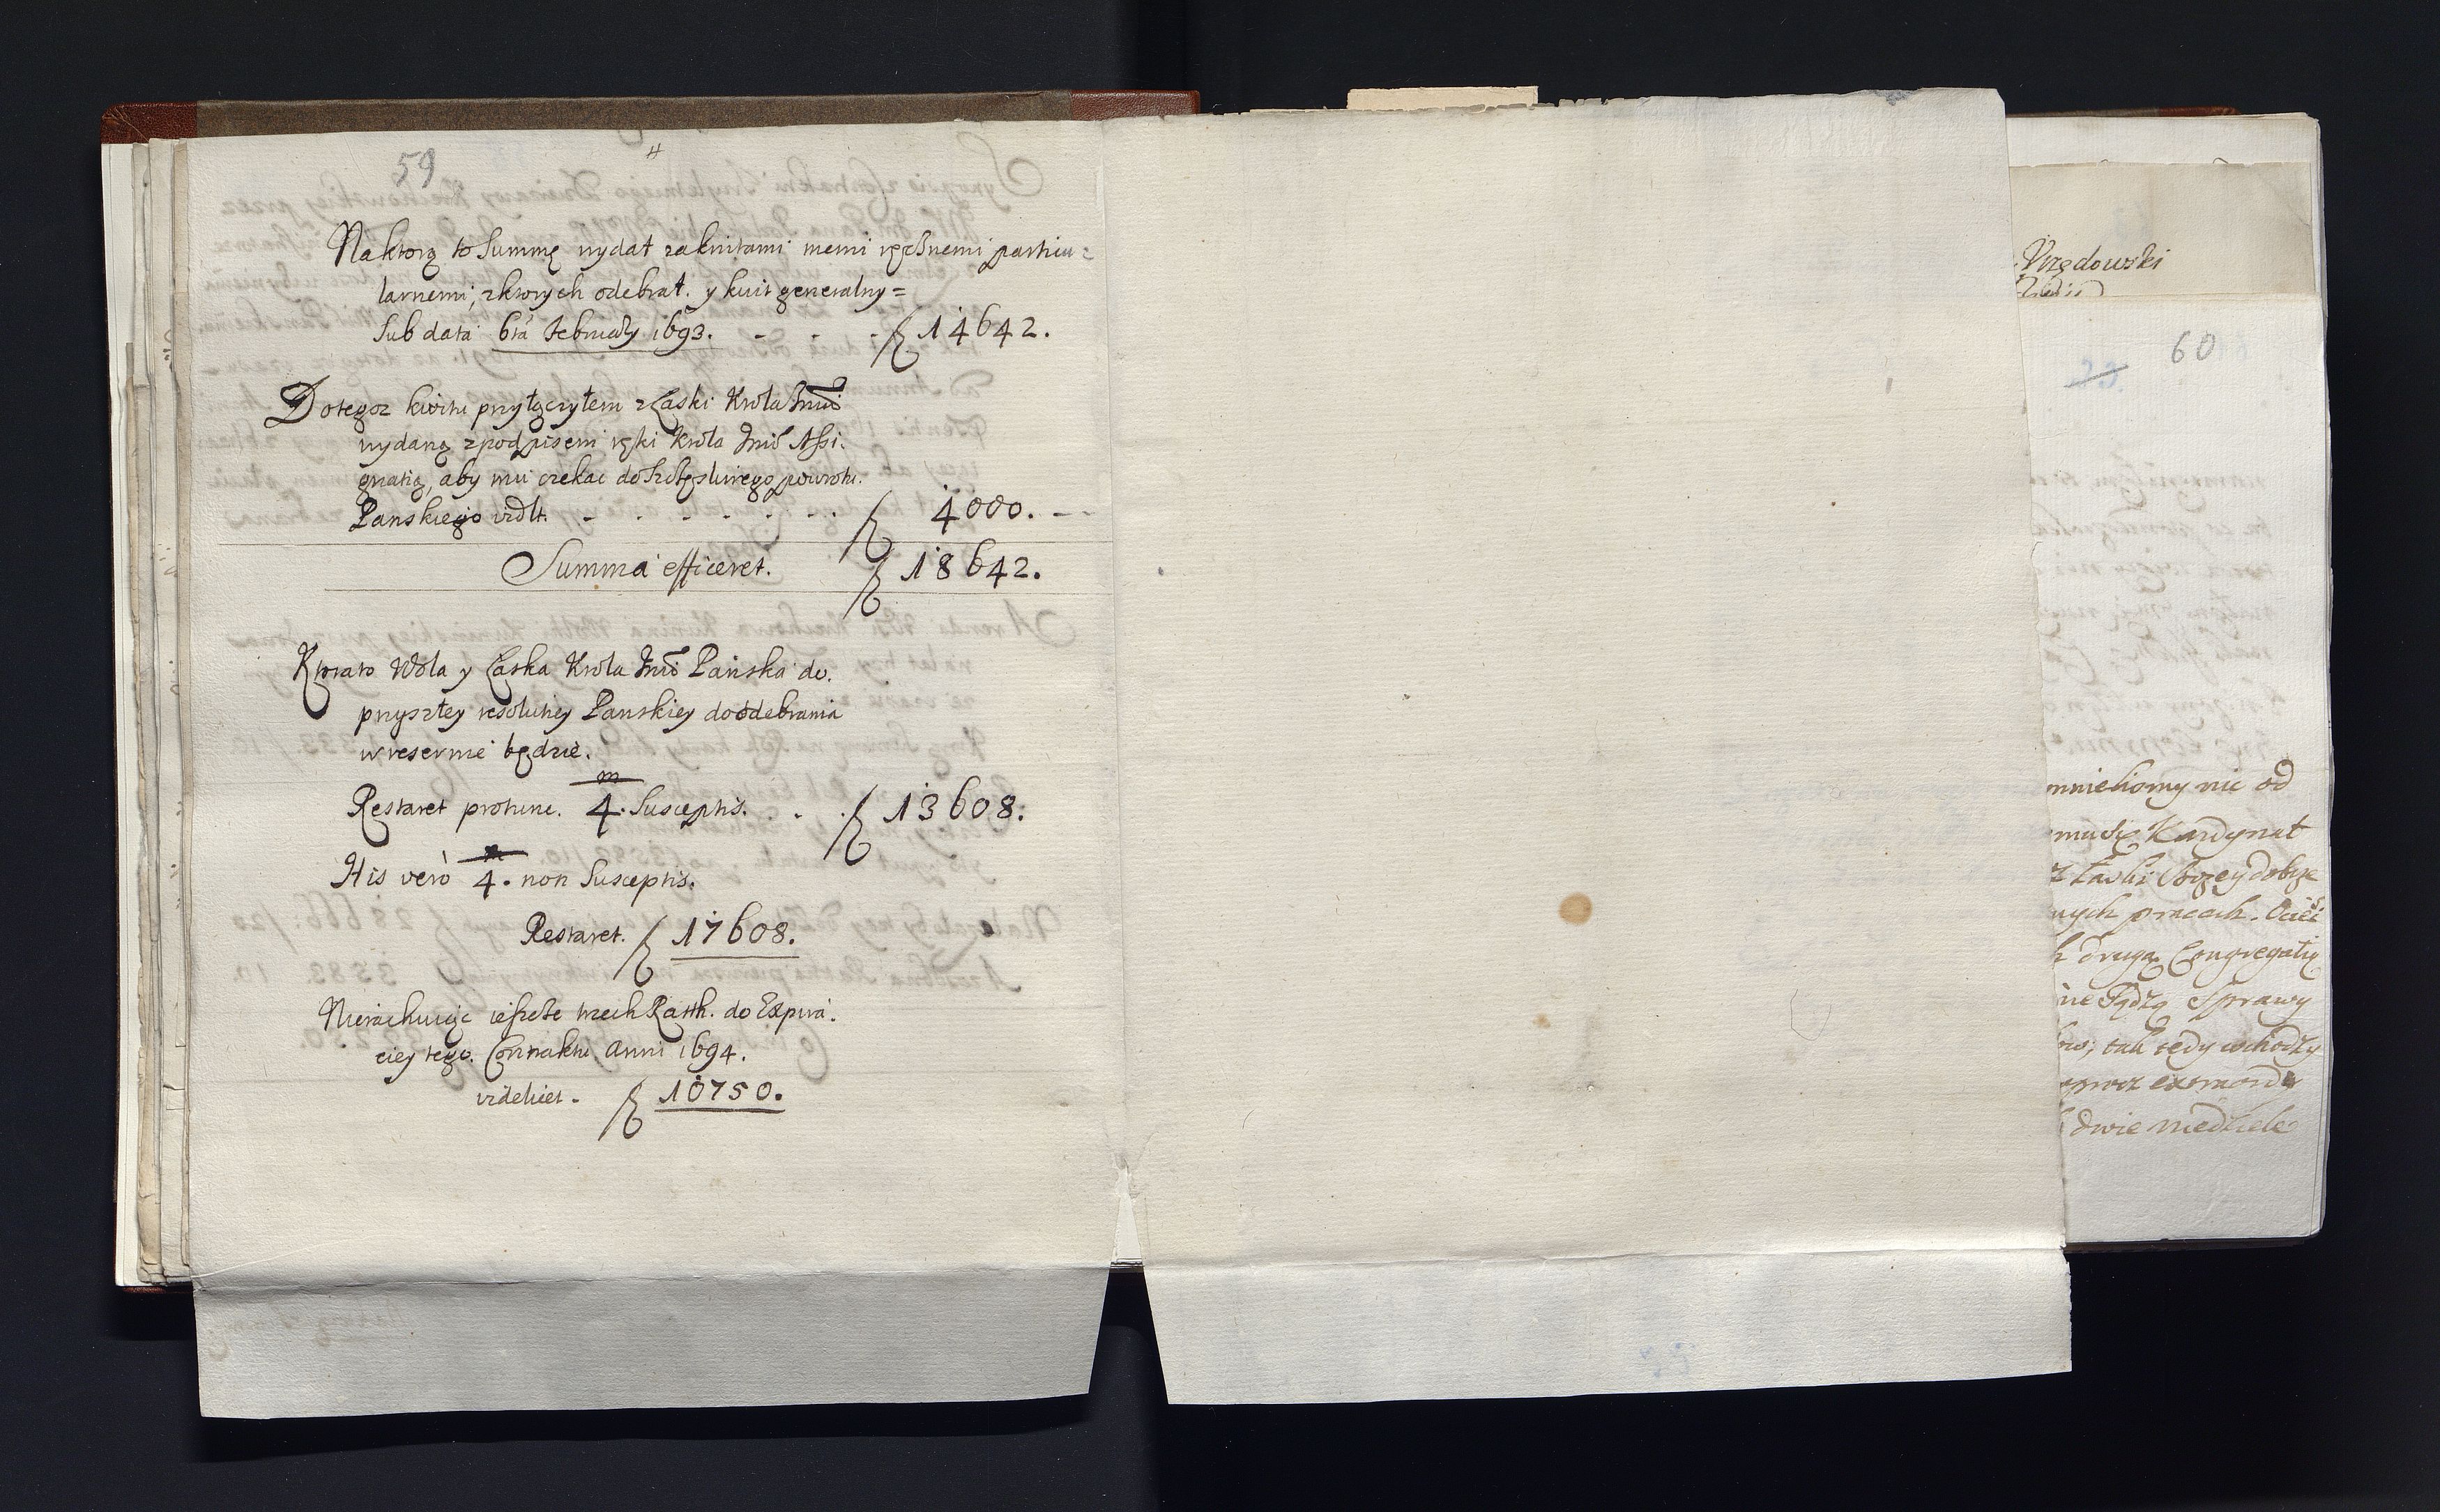 59
Na ktorą to Summę wydał za kwitami memi ręcznemi particu=
larnemi, z ktorych odebrał. y kwit generalny=
Sub data 6ta February 1693. - - - f 14642.
Do tegoz kwitu przyłączyłem z Łaski Krola Jmći
wydaną z podpisem ręki Krola Jmći Assi.
gnatią, aby mu czekac do Szczęsliwego powrotu.
Panskiego vidlt. - - - - - - - f 4000. - -
Summa efficeret. f 18642.
Ktorato Wola y Łaska Krola Jmći Panska do.
przyszłey resolutiey Panskiey do odebrania
w reserwie będzie.
m
Restaret protunc. 4. Susceptis. . . . f 13608:
m
His verò 4. non Susceptis.
Restaret. f 17608.
Nierachuiąc ieszcze trzech Ratth. do Expira.
ciey tego. Contraktu anni 1694.
videlicet. f 10750.
Urzędowski
60
23
mnieliomy nic od
mu się Kardynał
z Łaski Bozey dobrze
nych pracach. Ociec
drugą Congregatię
Sprawy
tak tedy wchodzy
dwie niedziele